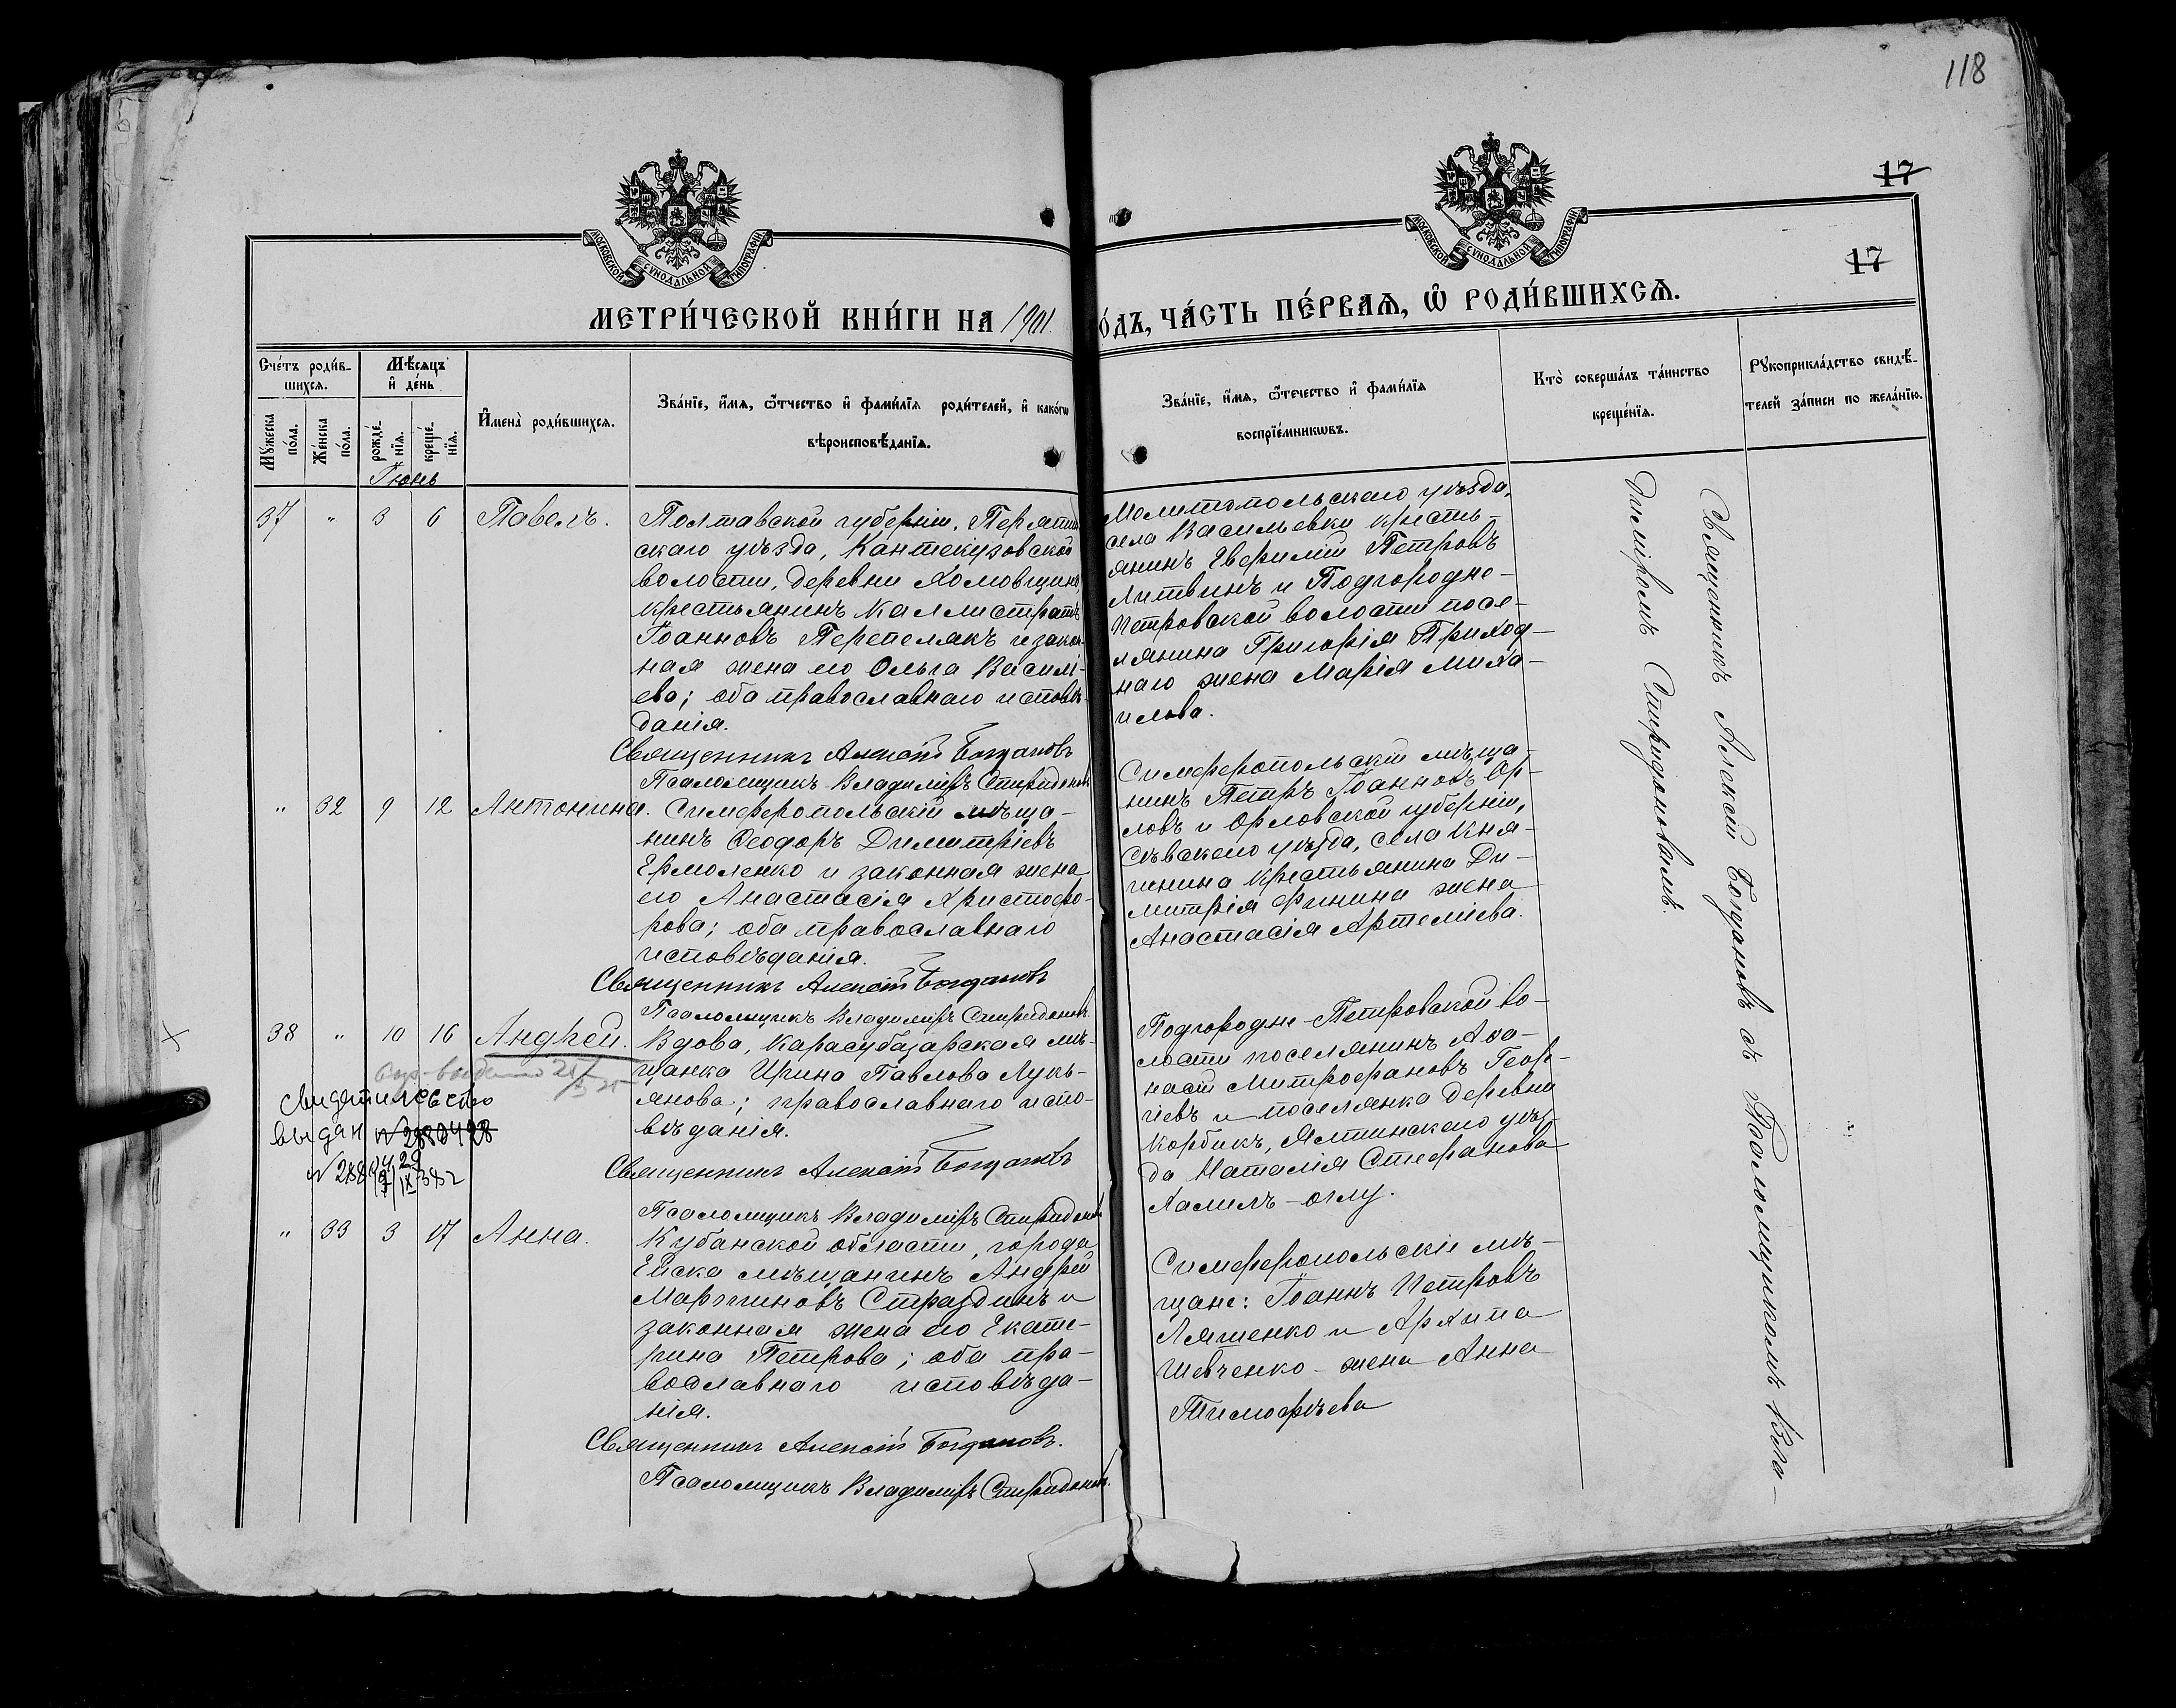 118
17
17
МОСКОВСКОЙ СѴНОДАЛЬНОЙ ТИПОГРАФІИ
МОСКОВСКОЙ СѴНОДАЛЬНОЙ ТИПОГРАФІИ
МЕТРИ́ЧЕСКОЙ КНИ́ГИ НА 1901
О́ДЪ, ЧА́СТЬ ПЕ́РВАѦ, Ѽ РОДИ́ВШИХСѦ.
Сче́тъ роди́в-
шихсѧ.
Мꙋжеска по́ла.
Же́нска по́ла.
Мѣ́сѧцъ
и҆ де́нь
рожде́-
нїѧ.
креще́-
нїѧ.
И҆мена̀ роди́вшихсѧ.
Зва́нїе, и҆́мѧ, ѻ҆́тчество и҆ фами́лїѧ роди́телей, и҆ како́гѡ
вѣроисповѣ́данїѧ.
Зва́нїе, и҆́мѧ, ѻ҆́течество и҆ фами́лїѧ
воспрїе́мникѡвъ.
Кто̀ соверша́лъ та́инство
креще́нїѧ.
Рꙋкоприкла́дство свидѣ́-
телей за́писи по жела́нїю.
Іюнь
37 " 3 6 Павелъ.
Полтавской губерніи, Перятин
скаго уѣзда, Кантекузовской
волости, деревни Хомовщины,
крестьянинъ Каллистратъ
Іоанновъ Перепелякъ и закон-
ная жена его Ольга Василі-
ева; оба православнаго исповѣ-
данія.
Священникъ Алексій Богдановъ
Псаломщикъ Владиміръ Спиридоновъ
Мелитопольскаго уѣзда,
села Васильевки кресть-
янинъ Еверилій Петровъ
Литвинъ и Подгородне-
Петровской волости посе-
лянина Григорія Приход-
наго жена Марія Миха-
илова.
" 32 9 12 Антонина.
Симферопольскій мѣща-
нинъ Ѳеодоръ Димитріевъ
Ермоленко и законная жена
его Анастасія Христофо-
рова; оба православнаго
исповѣданія.
Священникъ Алексій Богдановъ
Псаломщикъ Владиміръ Спиридоновъ
Симферопольскій мѣща-
нинъ Петръ Іоанновъ Ор-
ловъ и Орловской губерніи,
Сѣвскаго уѣзда, села Кня-
гинина крестьянина Ди-
митрія Финина жена
Анастасія Артеміева.
38 " 10 16 Андрей.
свидетилсвство
выдан N 2880428
N 2880429
Вдова, Карасубазарская мѣ-
щанка Ирина Павлова Лукь-
янова; православнаго испо-
вѣданія.
Священникъ Алексій Богдановъ
Псаломщикъ Владиміръ Спиридоновъ
Подгородне-Петровской во-
лости поселянинъ Аѳа-
насій Митрофановъ Геор-
гіевъ и поселянка деревни
Корбикъ, Ялтинскаго уѣз-
да Наталія Стефанова
Халилъ-оглу.
" 33 3 17 Анна.
Кубанской области, города
Ейска мѣщанинъ Андрей
Мартиновъ Страздинъ и
законная жена его Екате-
рина Петрова; оба пра-
вославнаго исповѣда-
нія.
Священникъ Алексій Богдановъ.
Псаломщикъ Владиміръ Спиридоновъ.
Симферопольскіе мѣ-
щане: Іоаннъ Петровъ
Ляшенко и Архипа
Шевченко жена Анна
Тимофѣева
Священникъ Алексій Богдановъ съ Псаломщикомъ Вла-
диміромъ Спиридоновымъ.